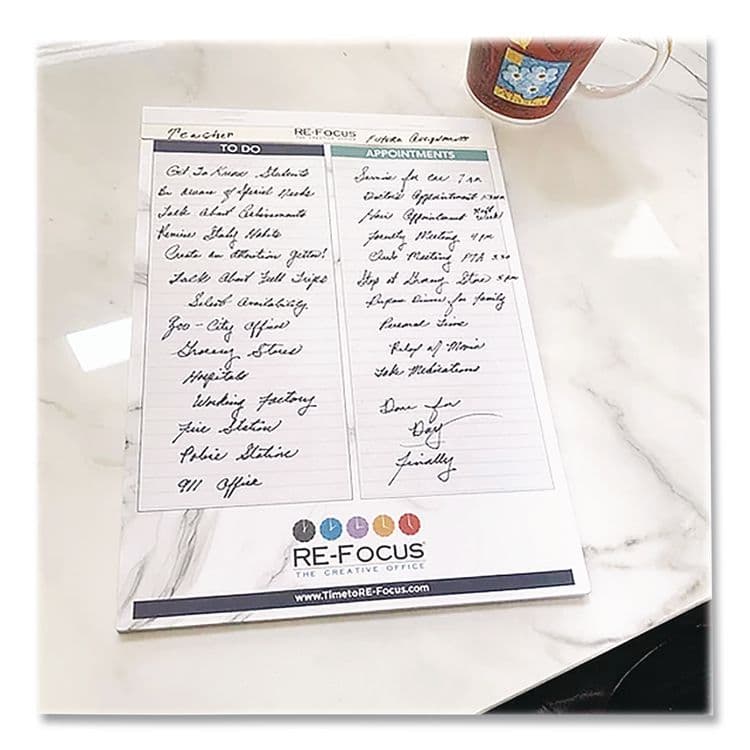 Teacher
RE-FOCUS
THE CREATIVE OFFICE
Future Assignments
TO DO
Get To Know Students
Be Aware of Special Needs
Talk About Achievements
Revise Study Habits
Create an attention getter!
Talk About Field Trips
Select Availability
Zoo - City Office
Grocery Stores
Hospitals
Working Factory
Fire Station
Police Station
911 Office
APPOINTMENTS
Service for car 7 am
Doctors Appointment
Hair Appointment Next Week
Faculty Meeting 4 pm
Club Meeting PTA 5:30
Stop at Grocery Store
Prepare Dinner for family
Personal Time
Relax w/ Movie
Take Medications
Done for
Day
Finally
RE-FOCUS
THE CREATIVE OFFICE
www.TimetoRE-Focus.com
ALASKA